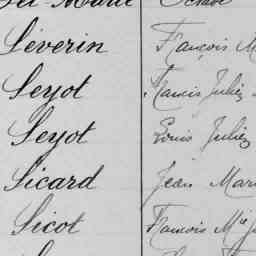 Séverin François M
Seyot Francis Julien
Seyot Louis Julien
Sicard Jean Mari
Sicot François Mie J